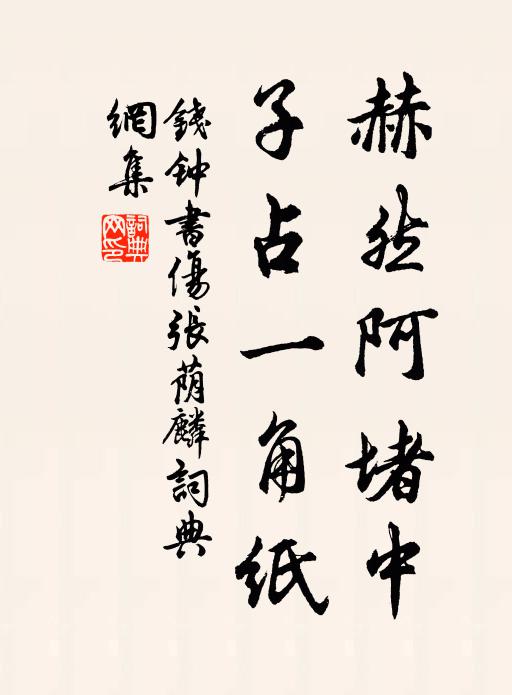 赫然阿堵中
子占一角紙
錢钟書傷張荫麟詞典
網集
詞典
网印